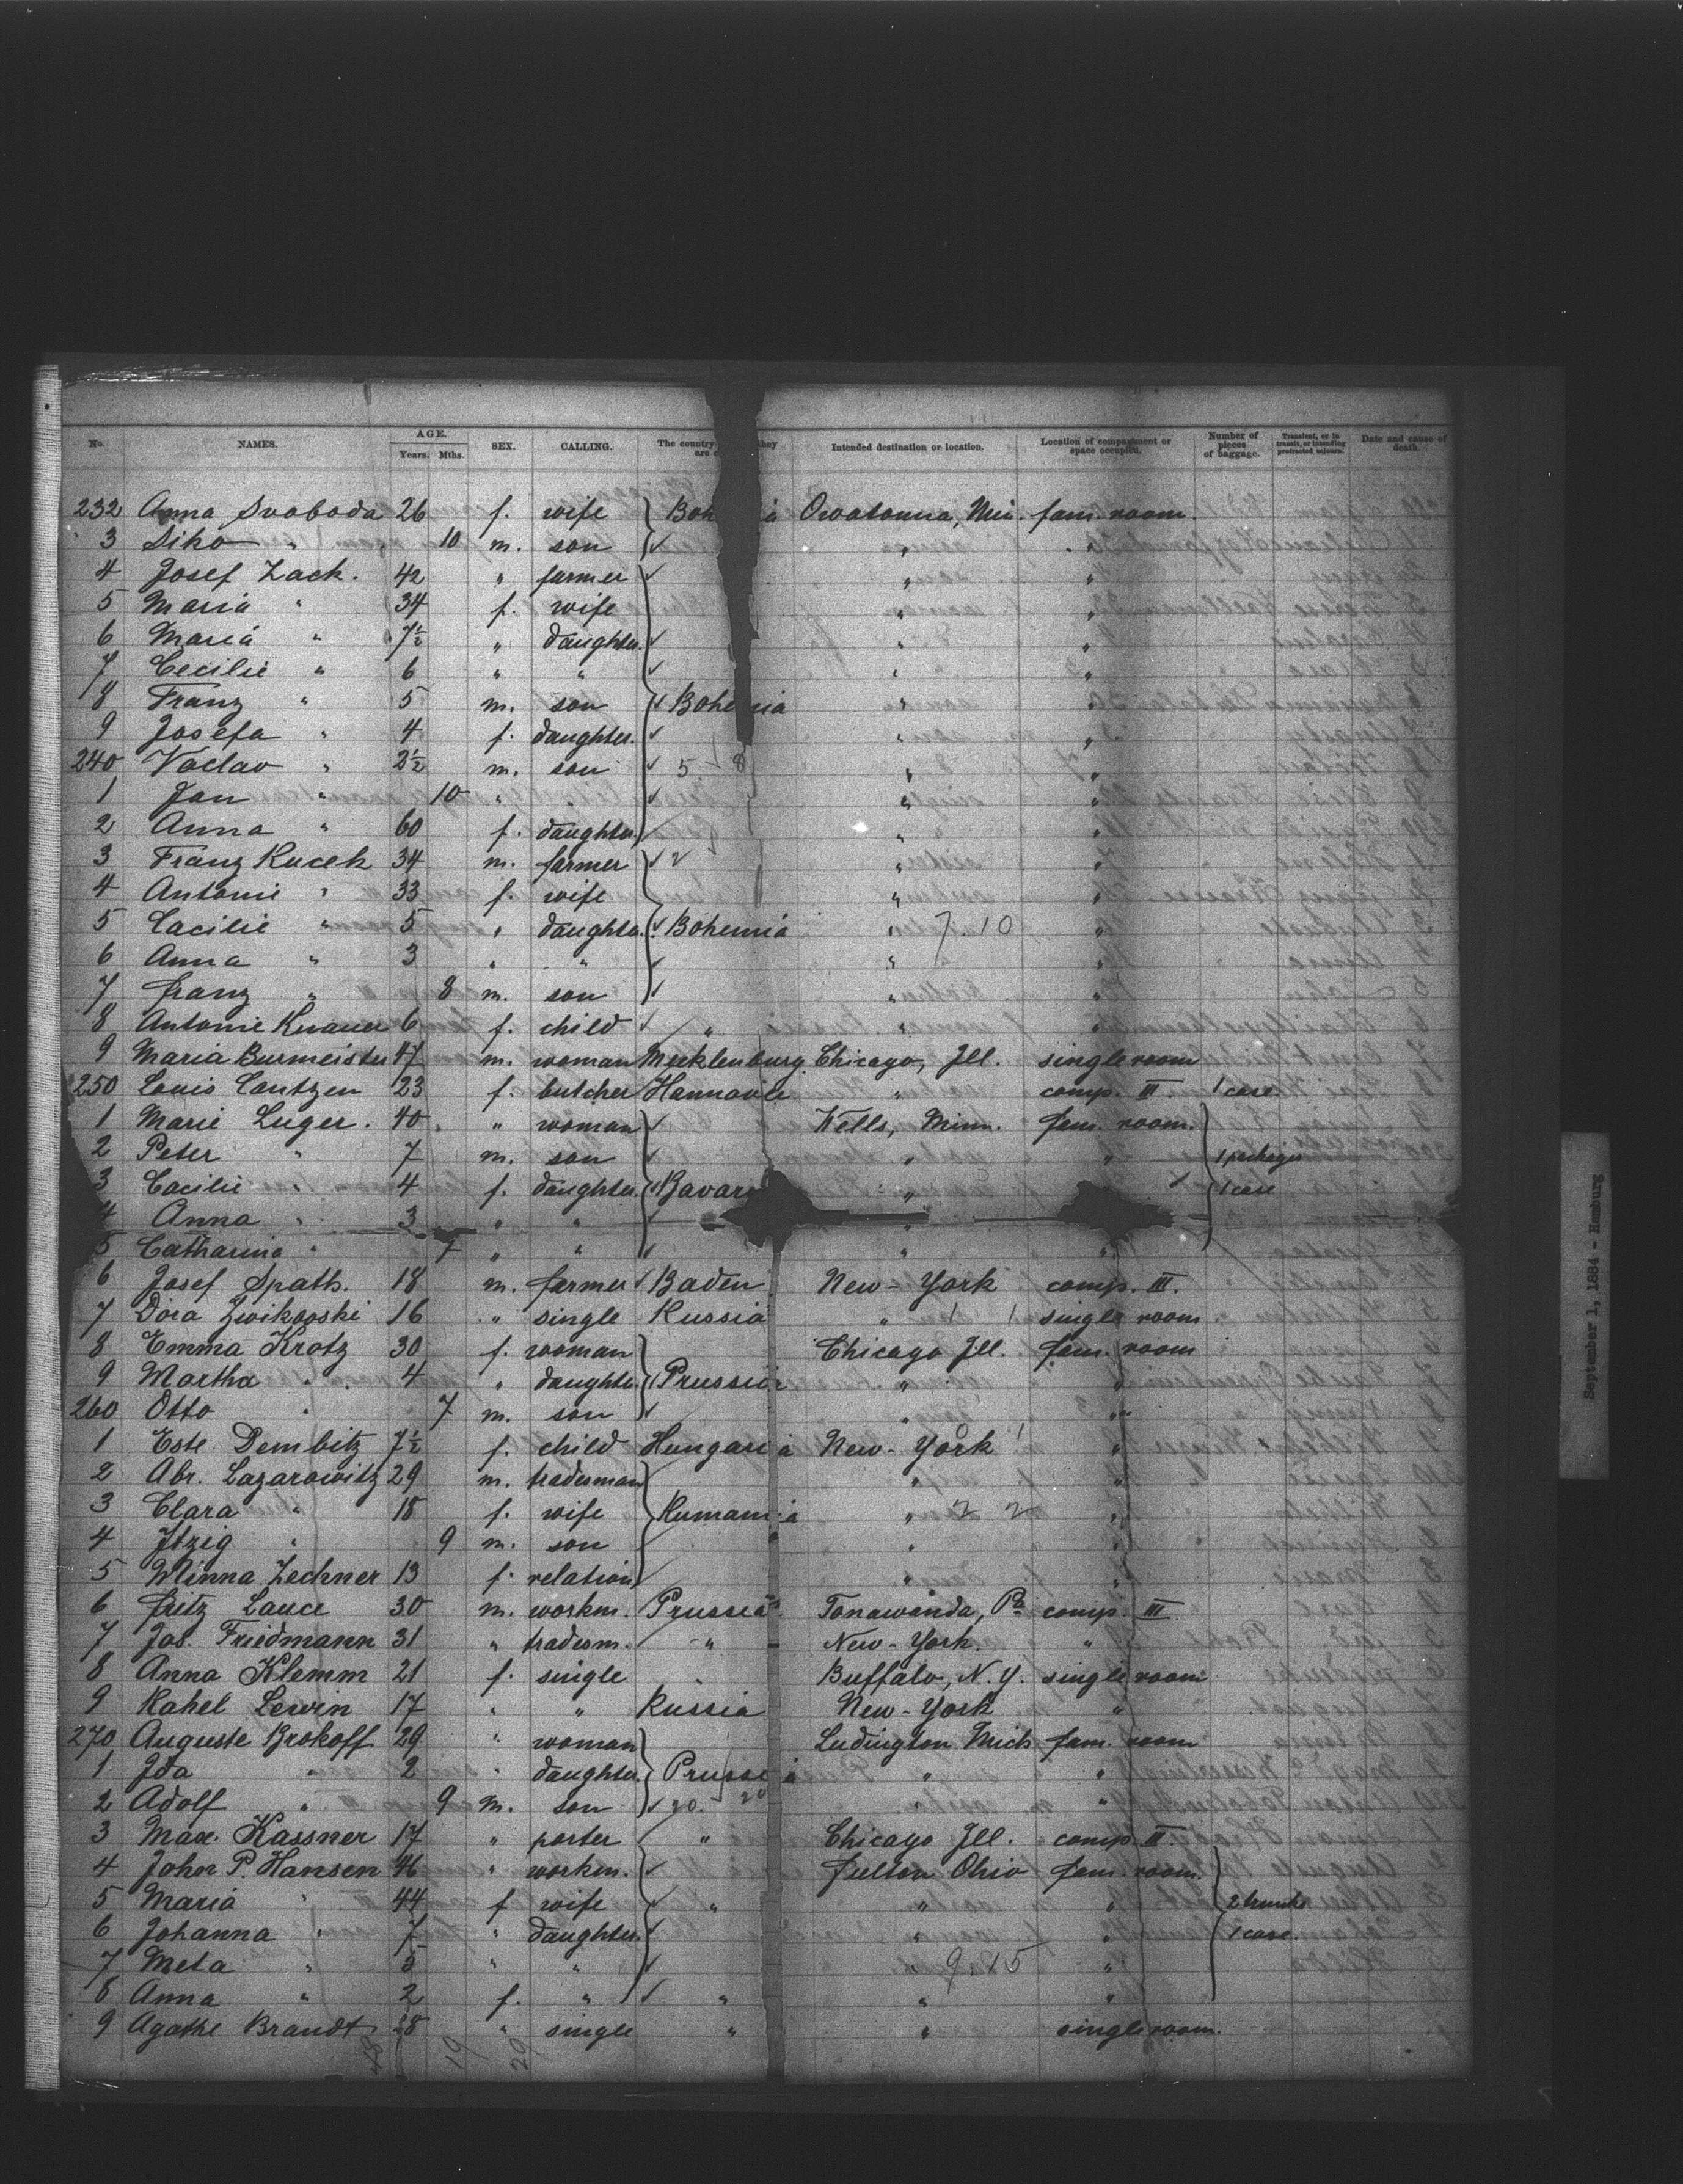 No. NAMES. AGE. Years. Mths. SEX. CALLING. The country they are Intended destination or location. Location of compartment or space occupied. Number of pieces of baggage. Transient, or in transit, or intending protracted sojourn. Date and cause of death.
232 Anna Svoboda 26 f. wife Boh a Owatonna, Min. fam. room
3 Siko " 10 m. son " "
4 Josef Zack. 42 " farmer " "
5 Maria " 34 f. wife " "
6 Maria " 7½ " daughter. " "
7 Cecilie " 6 " " " "
8 Franz " 5 m. son Bohemia " "
9 Josefa " 4 f. daughter. " "
240 Vaclav " 2½ m. son 5 8 " "
1 Jan " 10 " " " "
2 Anna " 60 f. daughter " "
3 Franz Kucek 34 m. farmer " "
4 Antonie " 33 f. wife " "
5 Cacilie " 5 " daughte. Bohemia " 7 10 "
6 Anna " 3 " " " "
7 franz " 8 m. son " "
8 Antonie Knauer 6 f. child " " "
9 Maria Burmeister 47 m. woman Mecklenburg Chicago, Ill. single room
250 Louis Contzen 23 f. butcher Hannover " comp. III. 1 case.
1 Marie Luger. 40 " woman Wells, Minn. fam. room.
2 Peter " 7 m. son " " 1 package
3 Cacilie " 4 f. daughter. Bavar " 1 case
4 Anna " 3 " " "
5 Catharina " 7 " " " "
6 Josef Spath. 18 m. farmer Baden New-York comp. III.
7 Dora Zwikowski 16 " single Russia " 1 1 single room
8 Emma Krotz 30 f. woman Chicago Ill. fam. room
9 Martha " 4 " daughte. Prussia " "
260 Otto " 7 m. son " "
1 Este Dembitz 7½ f. child Hungaria New-York "
2 Abr. Lazarowitz 29 m. tradesman " "
3 Clara " 18 f. wife Rumania " 2 2 "
4 Itzig " 9 m. son " "
5 Minna Zechner 13 f. relation " "
6 fritz Lauce 30 m. workm. Prussia Tonawanda, Pa comp. III
7 Jos. Friedmann 31 " tradesm. " New-York. "
8 Anna Klemm 21 f. single " Buffalo, N.Y. single room
9 Rahel Lewin 17 " " Russia New-York "
270 Auguste Brokoff 29 " woman Ludington Mich fam. room
1 Ida " 2 " daughter. Prussia " "
2 Adolf " 9 m. son 20. "
3 Max Kassner 17 " porter " Chicago Ill. comp. II.
4 John P. Hansen 46 " workm. fulton Ohio fam. room.
5 Maria " 44 f wife " " " 2 trunks
6 Johanna " 7 " daughter. " " 1 case.
7 Meta " 5 " " 9 15 "
8 Anna " 2 f. " " " "
9 Agathe Brandt 28 " single " " single room.
19 29
September 1, 1884 - Hamburg